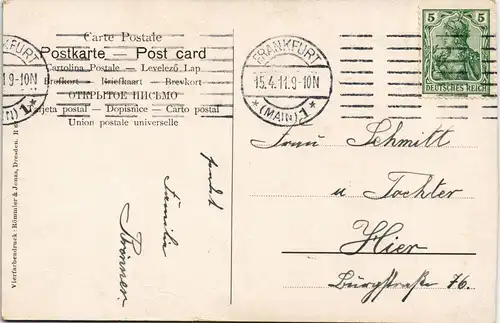 Carte Postale
Postkarte — Post card
Cartolina Postale — Levelező Lap
Brefkort — Briefkaart — Brevkort
ОТКРЫТОЕ ПИСЬМО
Tarjeta postal — Dopisnice — Carto postal
Union postale universelle
Vierfarbendruck: Römmler & Jonas, Dresden.
sendet
Familie
Brönner.
NKFURT
11.9-10N
(MAIN) 1 *
FRANKFURT
15.4.11.9-10N
* (MAIN) 1 *
5 5
DEUTSCHES REICH
Frau Schmitt
u Tochter
Hier
Burgstraße 76.